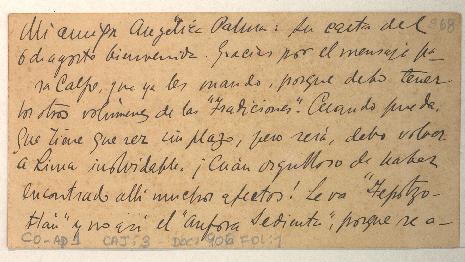 Mi amiga Angélica Palma: su carta del
6 de agosto bienvenida. Gracias por el mensaje pa-
ra Calpe, que ya les mando, porque debo tener
los otros volúmenes de las "Tradiciones". Cuando pueda,
que tiene que ser sin plazo, pero será, debo volver
a Lima inolvidable. ¡Cuán orgulloso de haber
encontrado allí muchos afectos! Le va "Tepotzo-
tlán" y no así el "Anfora Sedienta", porque se a-
CO-AP1 CAJ: 3 - DOC: 906 FOL: 1